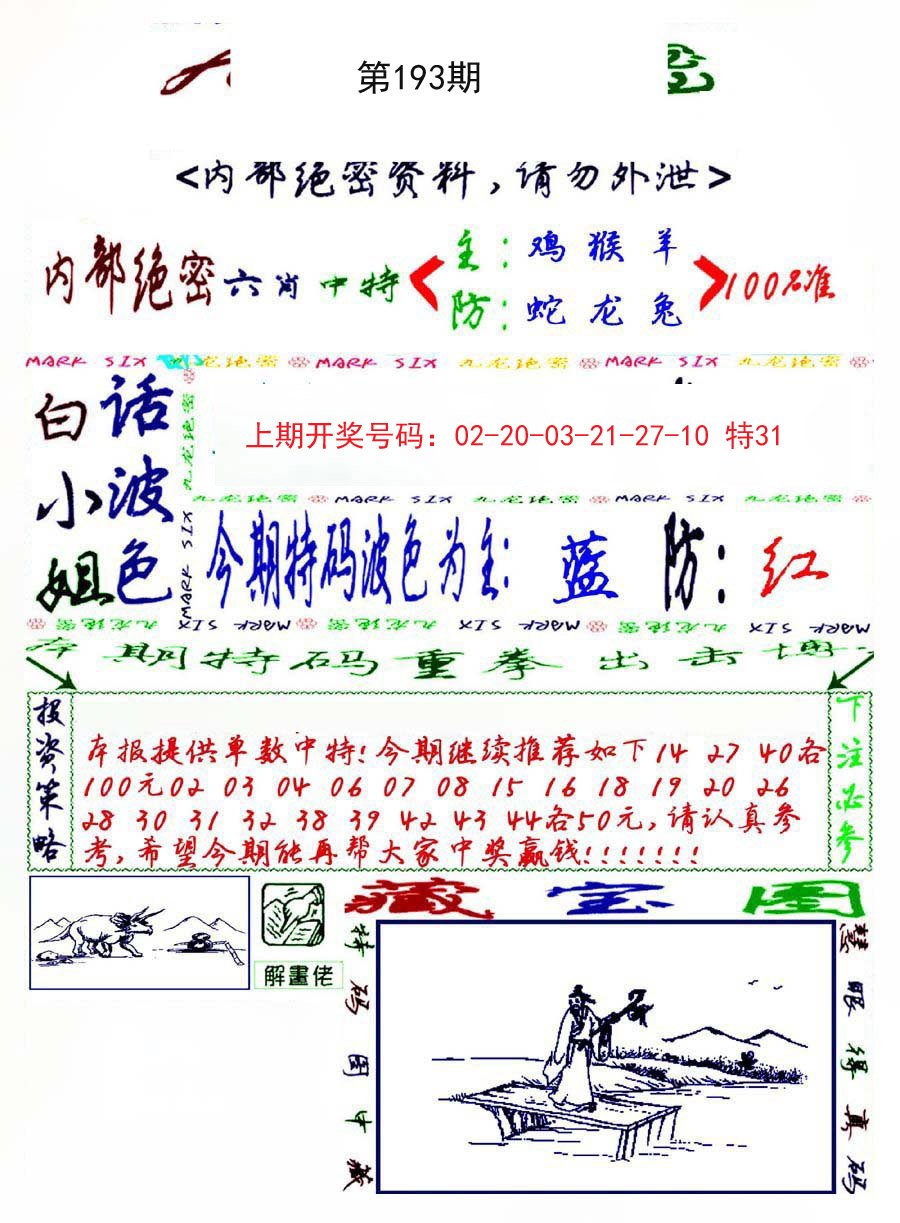 第193期
<内部绝密资料,请勿外泄>
内部绝密六肖中特
主:鸡猴羊
防:蛇龙兔
100%准
MARK SIX 九龙绝密 MARK SIX 九龙绝密 MARK SIX 九龙绝密
白话
小波
姐色
九龙绝密
MARK SIX
上期开奖号码：02-20-03-21-27-10 特31
九龙绝密 MARK SIX 九龙绝密 MARK SIX 九龙绝密
今期特码波色为主:蓝 防:红
MARK SIX 九龙绝密 MARK SIX 九龙绝密 MARK SIX 九龙绝密
本期特码重拳出击博
投资策略
本报提供单数中特!今期继续推荐如下14 27 40各
100元02 03 04 06 07 08 15 16 18 19 20 26
28 30 31 32 38 39 42 43 44各50元,请认真参
考,希望今期能再帮大家中奖赢钱!!!!!!!
下注必参
解畫佬
藏宝图
特码图中藏
慧眼得真码